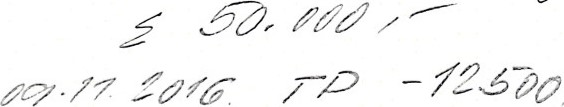 Σ 50.000,-
09.11.2016. TP -12500